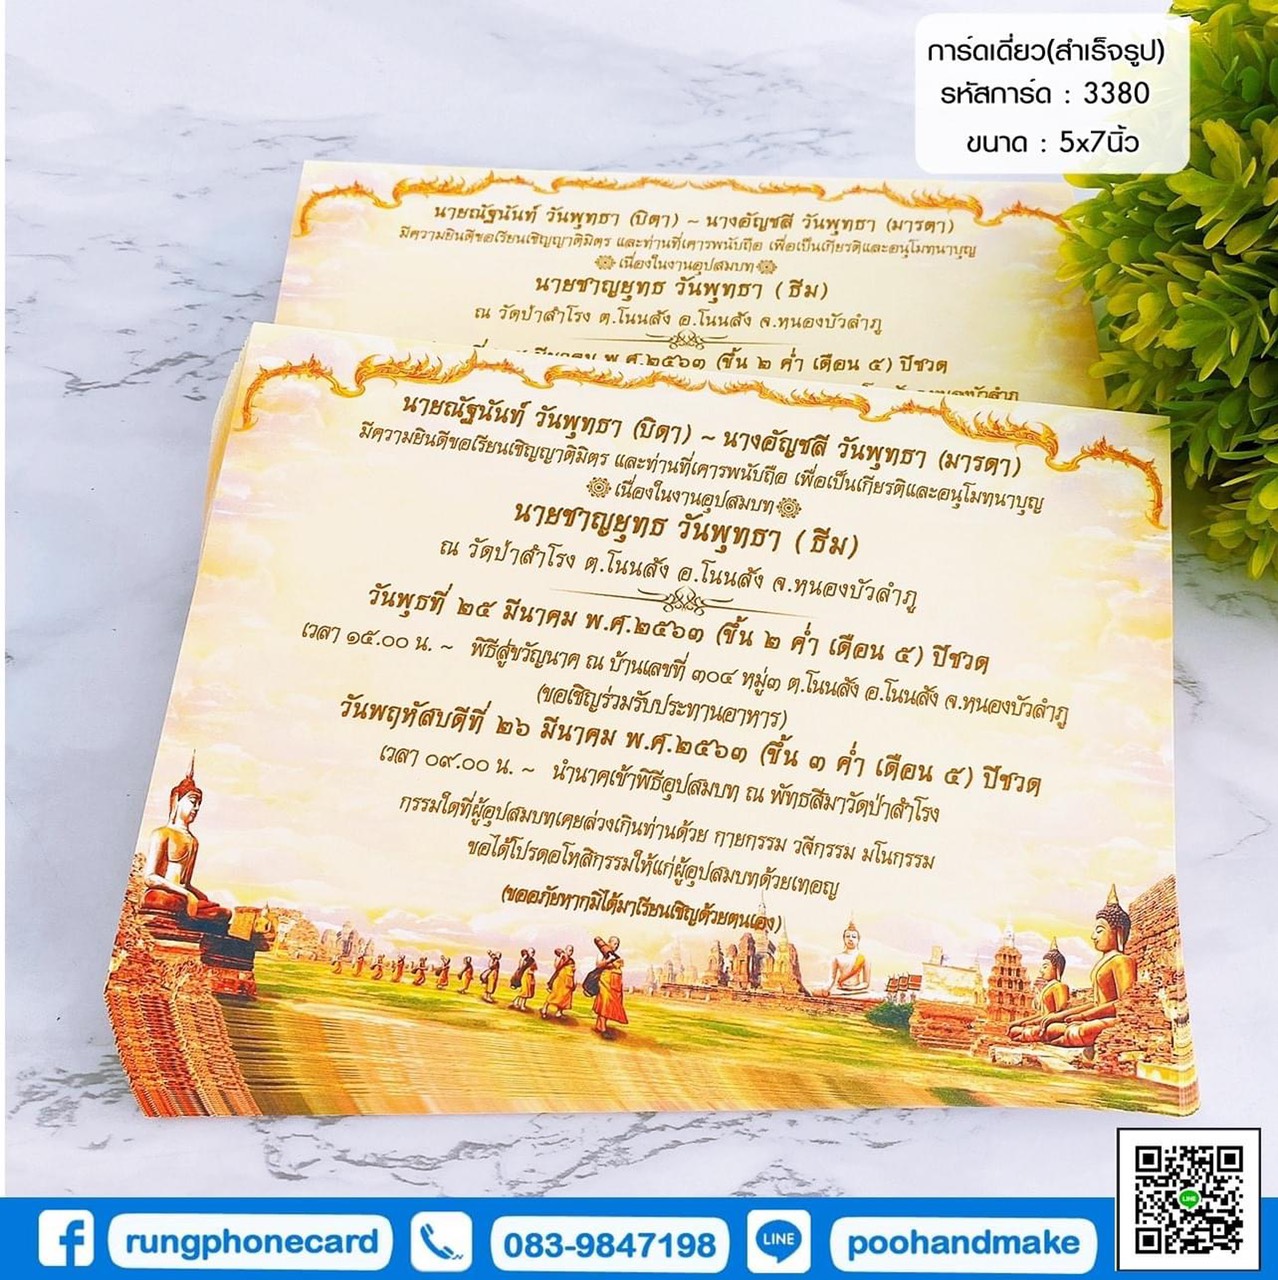 การ์ดเดี่ยว(สำเร็จรูป)
รหัสการ์ด : 3380
ขนาด : 5x7นิ้ว
นายณัฐนันท์ วันพุทธา (บิดา) ~ นางอัญชสี วันพุทธา (มารดา)
มีความยินดีขอเรียนเชิญญาติมิตร และท่านที่เคารพนับถือ เพื่อเป็นเกียรติและอนุโมทนาบุญ
เนื่องในงานอุปสมบท
นายชาญยุทธ วันพุทธา ( ธีม)
ณ วัดป่าสำโรง ต.โนนสัง อ.โนนสัง จ.หนองบัวลำภู
มีนาคม พ.ศ.๒๕๖๓ (ขึ้น ๒ ค่ำ เดือน ๕) ปีชวด
นายณัฐนันท์ วันพุทธา (บิดา) ~ นางอัญชสี วันพุทธา (มารดา)
มีความยินดีขอเรียนเชิญญาติมิตร และท่านที่เคารพนับถือ เพื่อเป็นเกียรติและอนุโมทนาบุญ
เนื่องในงานอุปสมบท
นายชาญยุทธ วันพุทธา ( ธีม)
ณ วัดป่าสำโรง ต.โนนสัง อ.โนนสัง จ.หนองบัวลำภู
วันพุธที่ ๒๕ มีนาคม พ.ศ.๒๕๖๓ (ขึ้น ๒ ค่ำ เดือน ๕) ปีชวด
เวลา ๑๕.๐๐ น. ~ พิธีสู่ขวัญนาค ณ บ้านเลขที่ ๓๐๔ หมู่๓ ต.โนนสัง อ.โนนสัง จ.หนองบัวลำภู
(ขอเชิญร่วมรับประทานอาหาร)
วันพฤหัสบดีที่ ๒๖ มีนาคม พ.ศ.๒๕๖๓ (ขึ้น ๓ ค่ำ เดือน ๕) ปีชวด
เวลา ๐๙.๐๐ น. ~ นำนาคเข้าพิธีอุปสมบท ณ พัทธสีมาวัดป่าสำโรง
กรรมใดที่ผู้อุปสมบทเคยล่วงเกินท่านด้วย กายกรรม วจีกรรม มโนกรรม
ขอได้โปรดอโหสิกรรมให้แก่ผู้อุปสมบทด้วยเทอญ
(ขออภัยหากมิได้มาเรียนเชิญด้วยตนเอง)
rungphonecard
083-9847198
LINE
poohandmake